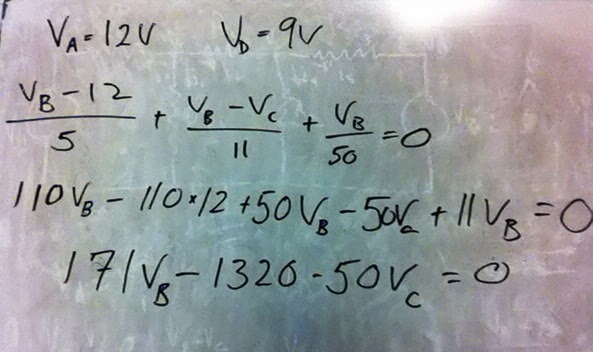 V_A = 12V V_D = 9V
(V_B - 12)/5 + (V_B - V_C)/11 + V_B/50 = 0
110V_B - 110×12 + 50V_B - 50V_C + 11V_B = 0
171V_B - 1320 - 50V_C = 0